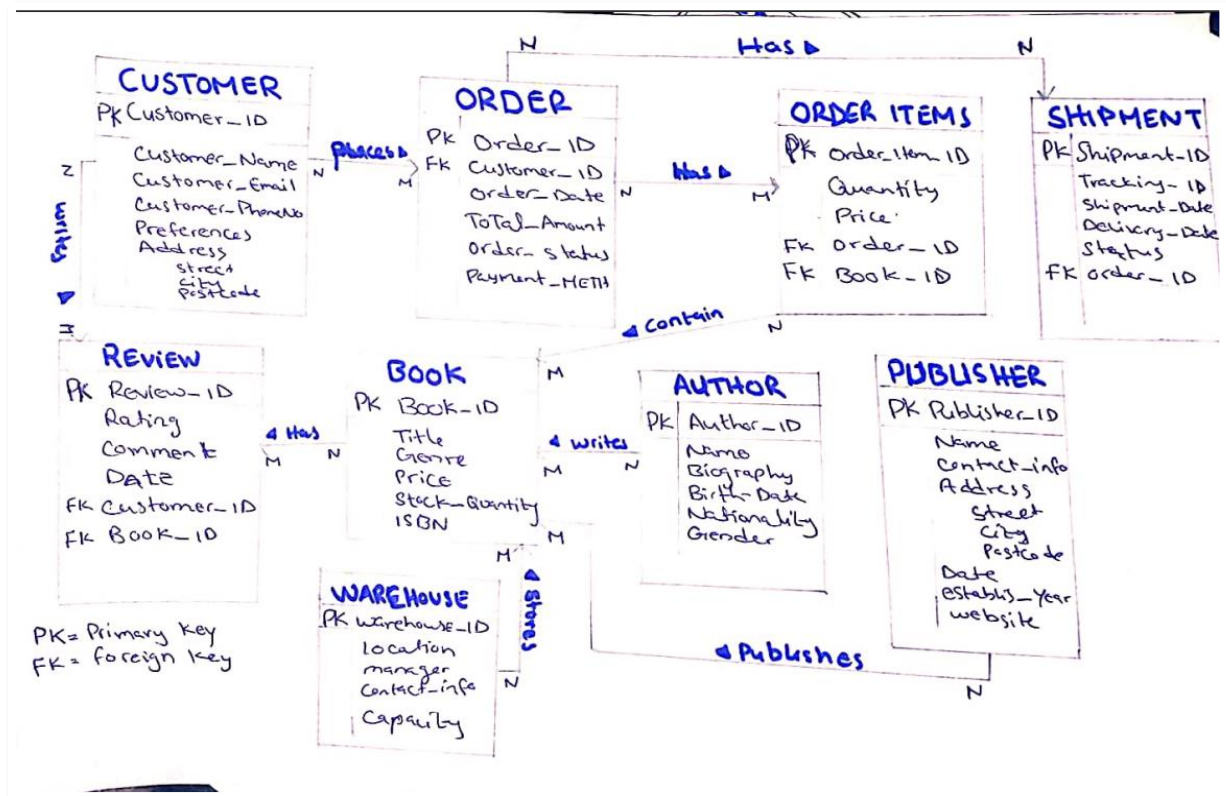 N Has N
CUSTOMER
PK Customer_ID
Customer_Name
Customer_Email
Customer_PhoneNo
Preferences
Address
Street
City
Postcode
N places M
ORDER
PK Order_ID
FK Customer_ID
Order_Date
ToTal_Amount
Order_Status
Payment_METH
N Has M
ORDER ITEMS
PK Order_Item_ID
Quantity
Price
FK Order_ID
FK Book_ID
SHIPMENT
PK Shipment_ID
Tracking_ID
Shipment_Date
Delivery_Date
Status
FK Order_ID
N
writes
M
Contain
N
M
REVIEW
PK Review_ID
Rating
Comment
Date
FK Customer_ID
FK Book_ID
Has
M N
BOOK
PK Book_ID
Title
Genre
Price
Stock_Quantity
ISBN
writes
M N
AUTHOR
PK Author_ID
Name
Biography
Birth-Date
Nationality
Gender
PUBLISHER
PK Publisher_ID
Name
Contact_info
Address
Street
City
Postcode
Date
establis_Year
website
M
M
Stores
N
WAREHOUSE
PK Warehouse_ID
location
manager
Contact_info
Capacity
Publishes
N
PK= Primary Key
FK= foreign Key